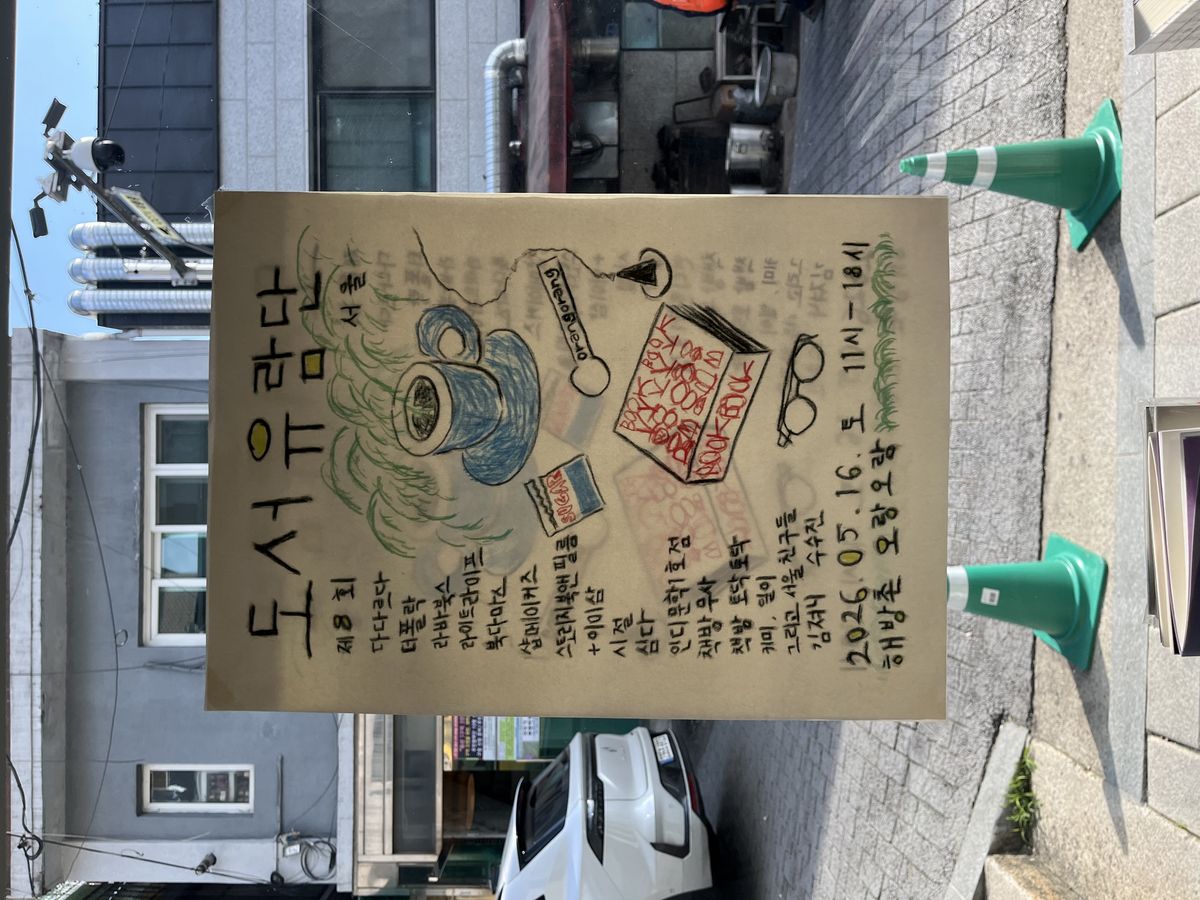 도서유람단
서울
제8회
다다르다
더폴락
라바북스
라이트라이프
북다마스
샵메이커즈
스토리지북앤필름
+ 이미상
시절
심다
인디문학1호점
책방 무사
책방 토닥토닥
키미, 일이
그리고 서울 친구들
김저니 수수진
orangorang
BOOK BOOK
2026.05.16.토 11시-18시
해방촌 오랑오랑